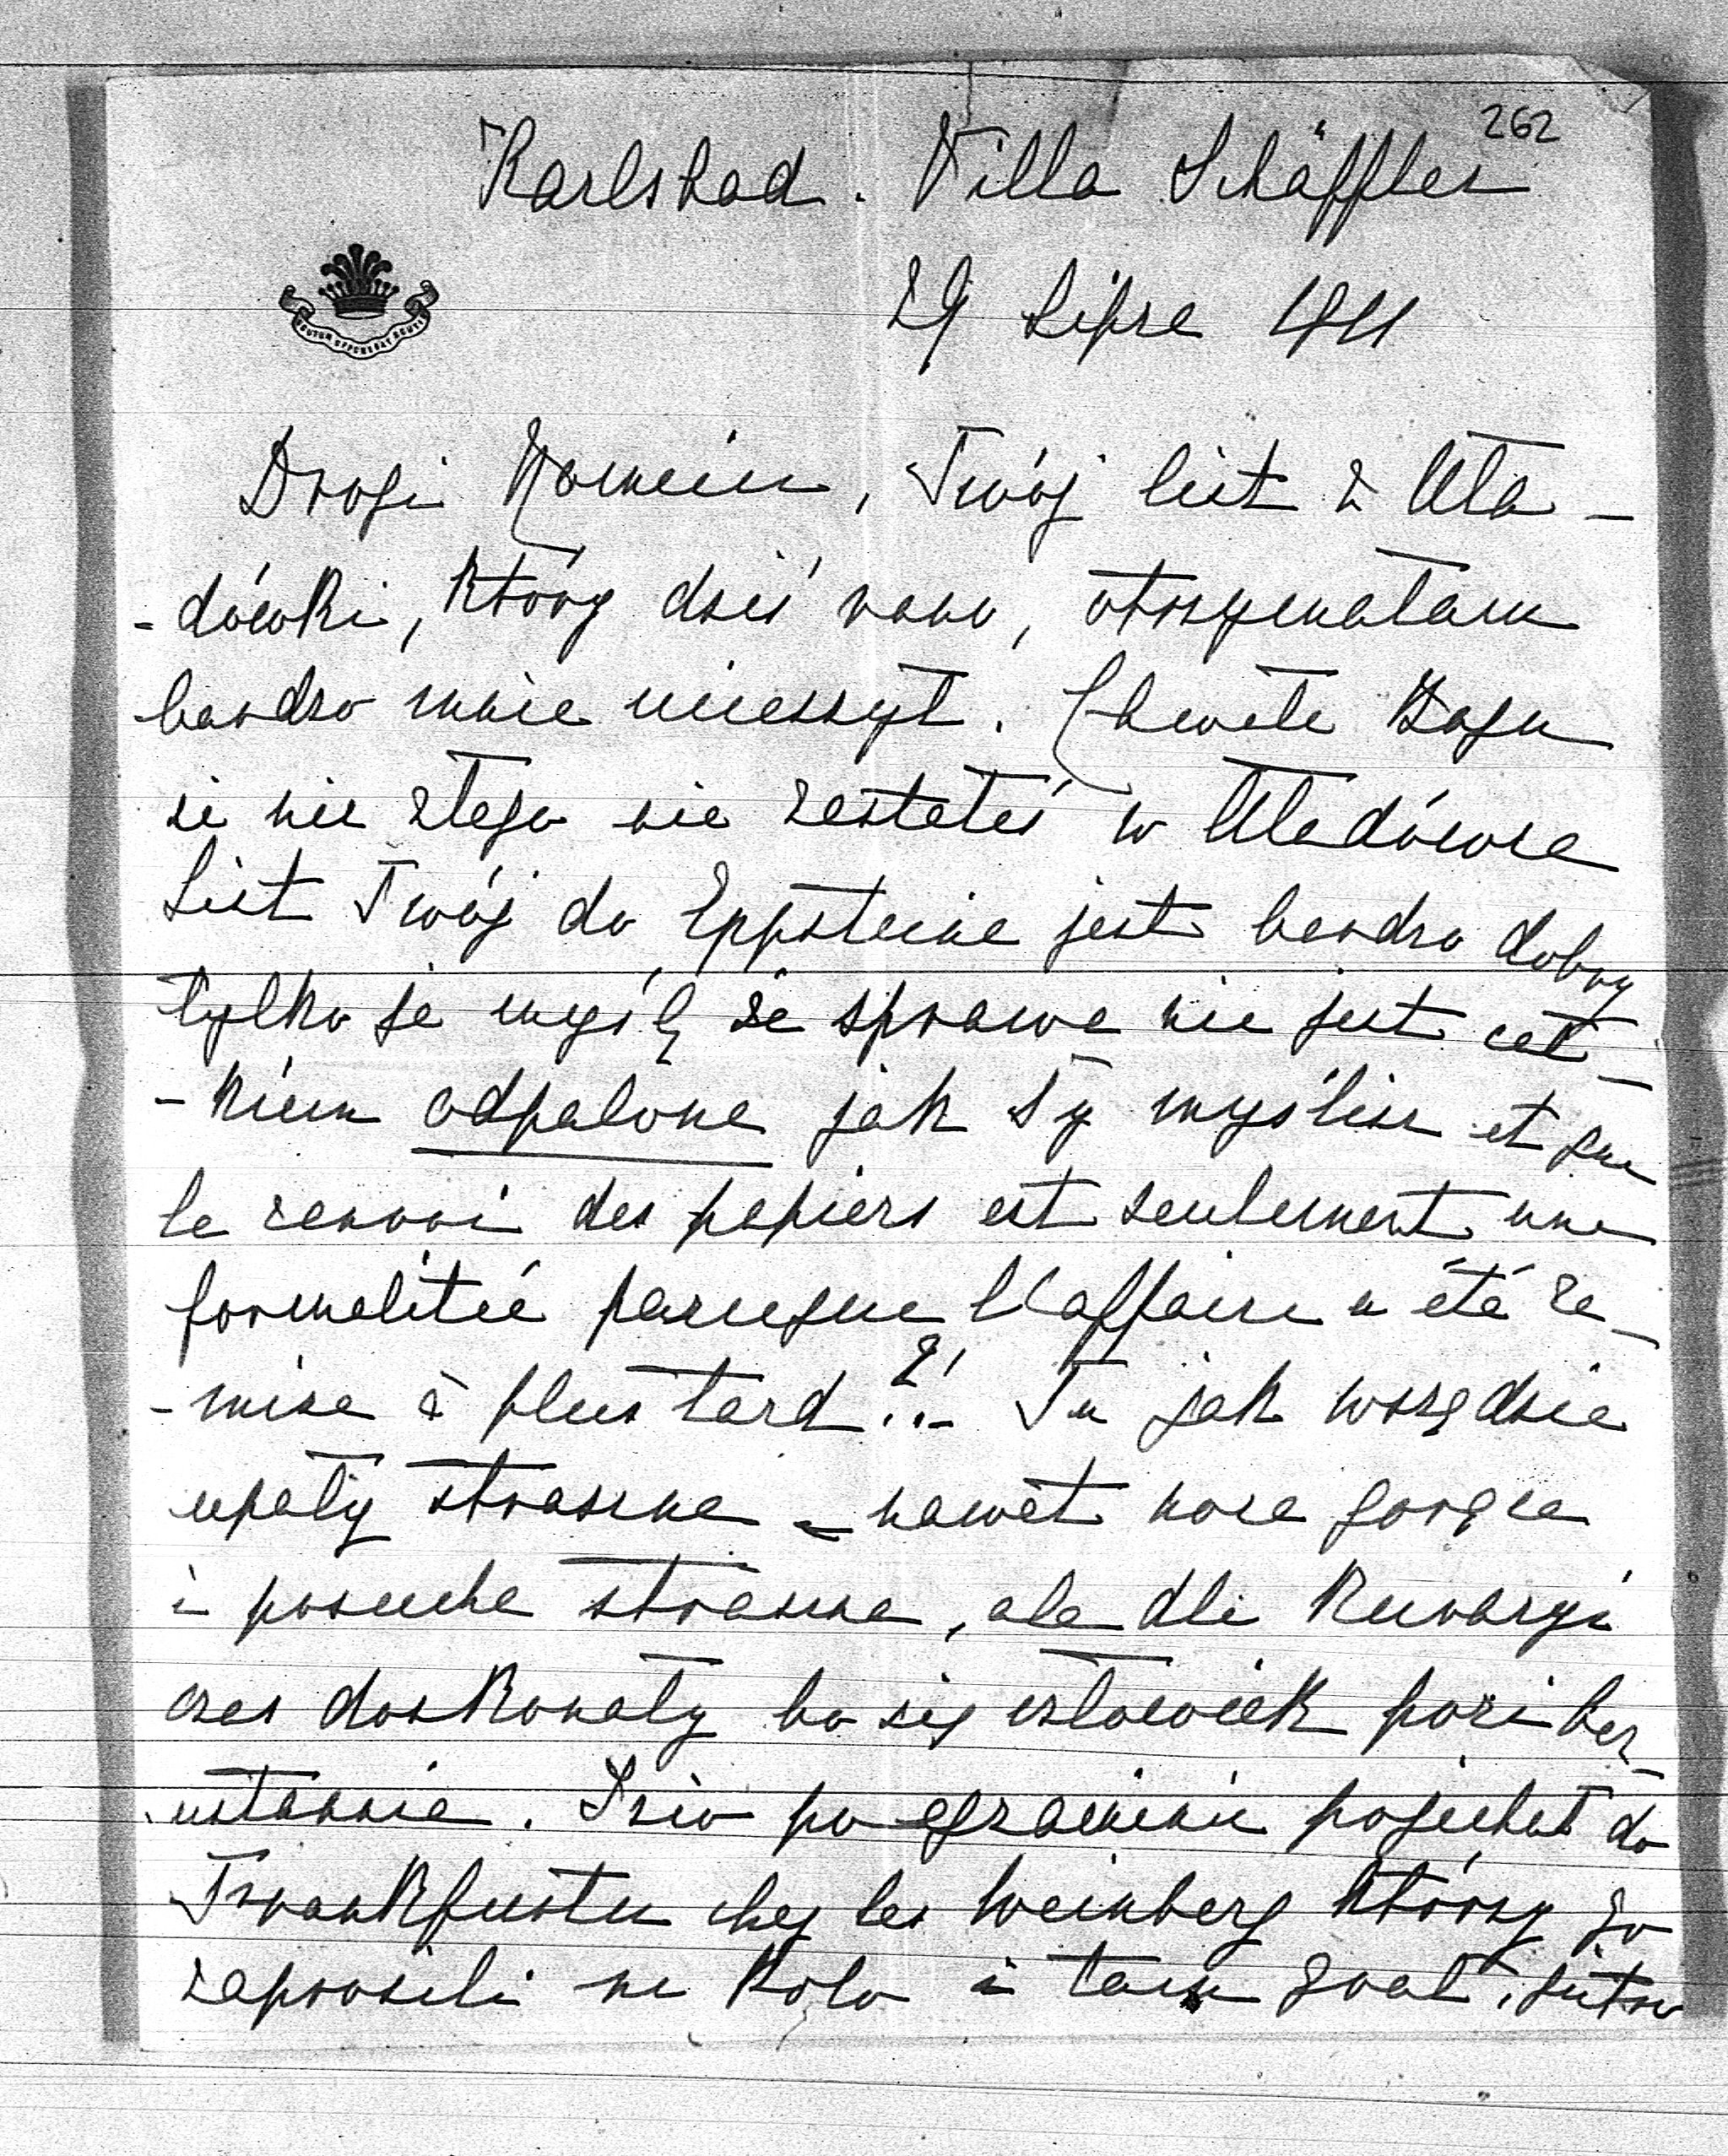 262
Karlsbad. Villa Schäffler
29 Lipca 1911
Drogi Romciu, Twój list z Uła-
-dówki, który dziś rano, otrzymałam
bardzo mnie ucieszył. Chwała Bogu
że nic złego nie zastałeś w Uładówce
List Twój do Eppsteina jest bardzo dobry
tylko ja myślę że sprawa nie jest cał-
-kiem odpalona jak Ty myślisz et que
le renvoi des papiers est seulement une
formalitié parceque l'affaire a été re-
-mise à plus tard?!.. Tu jak wszędzie
upały straszne - nawet noce gorące
i posucha straszna, ale dla kuracyi
czas doskonały bo się człowiek poci bez-
-ustannie. Józio po egzaminie pojechał do
Frankfurtu chez les Weinberg którzy go
zaprosili na Polo i tam grał, jutro